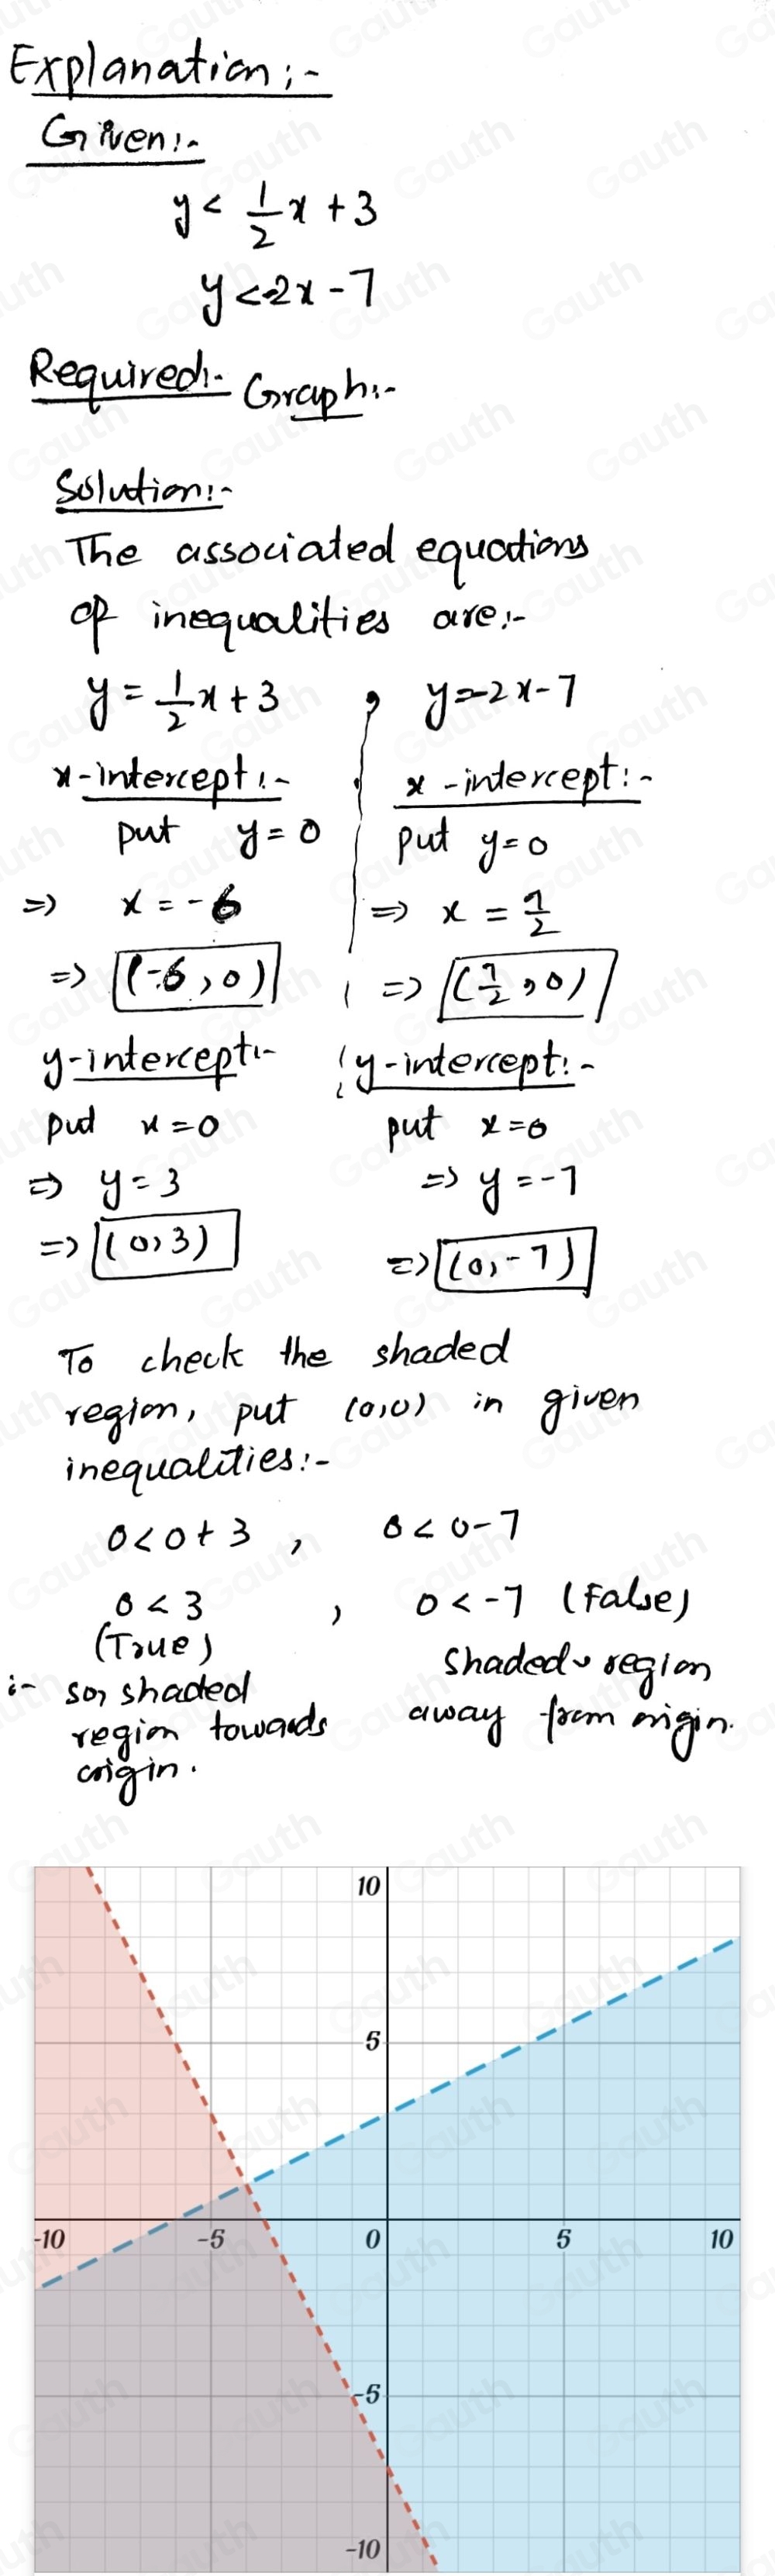 Explanation:-
Given:-
y < 1/2 x + 3
y <-2x - 7
Required:- Graph:-
Solution:-
The associated equations
of inequalities are:-
y = 1/2 x + 3 , y=-2x-7
x-intercept:- x-intercept:-
put y = 0 put y=0
=> x = -6 => x = 7/2
=> (-6, 0) => (7/2, 0)
y-intercept:- y-intercept:-
put x = 0 put x=0
=> y = 3 => y = -7
=> (0, 3) => (0, -7)
To check the shaded
region, put (0,0) in given
inequalities:-
0 < 0 + 3 , 0 < 0-7
0 < 3 , 0 < -7 (False)
(True) shaded region
:- so, shaded away from origin.
region towards
origin.
10
5
-10 -5 0 5 10
-5
-10
Gauth